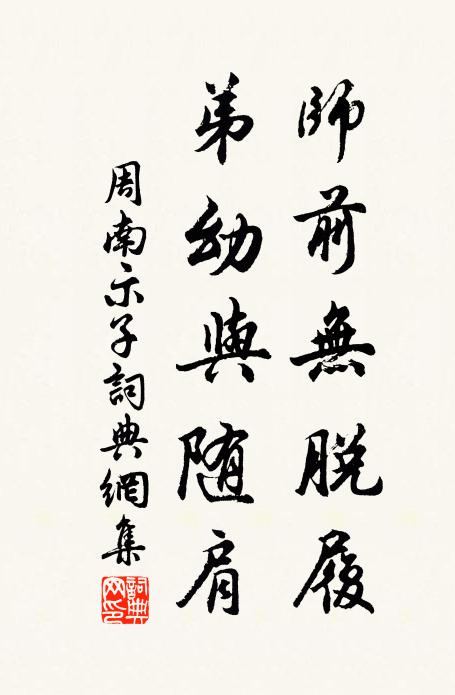 師前無脫履
弟幼與随肩
周南示子詞典網集
詞典网印